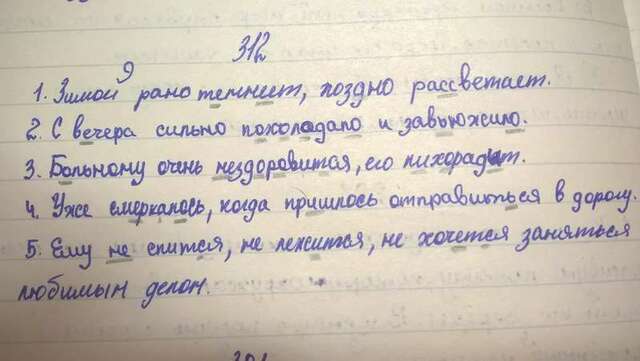 312
я
1. Зимой рано темнеет, поздно рассветает.
2. С вечера сильно похолодало и завьюжило.
3. Больному очень нездоровится, его лихорадит.
4. Уже смеркалось, когда пришлось отправиться в дорогу.
5. Ему не спится, не лежится, не хочется заняться
любимым делом.